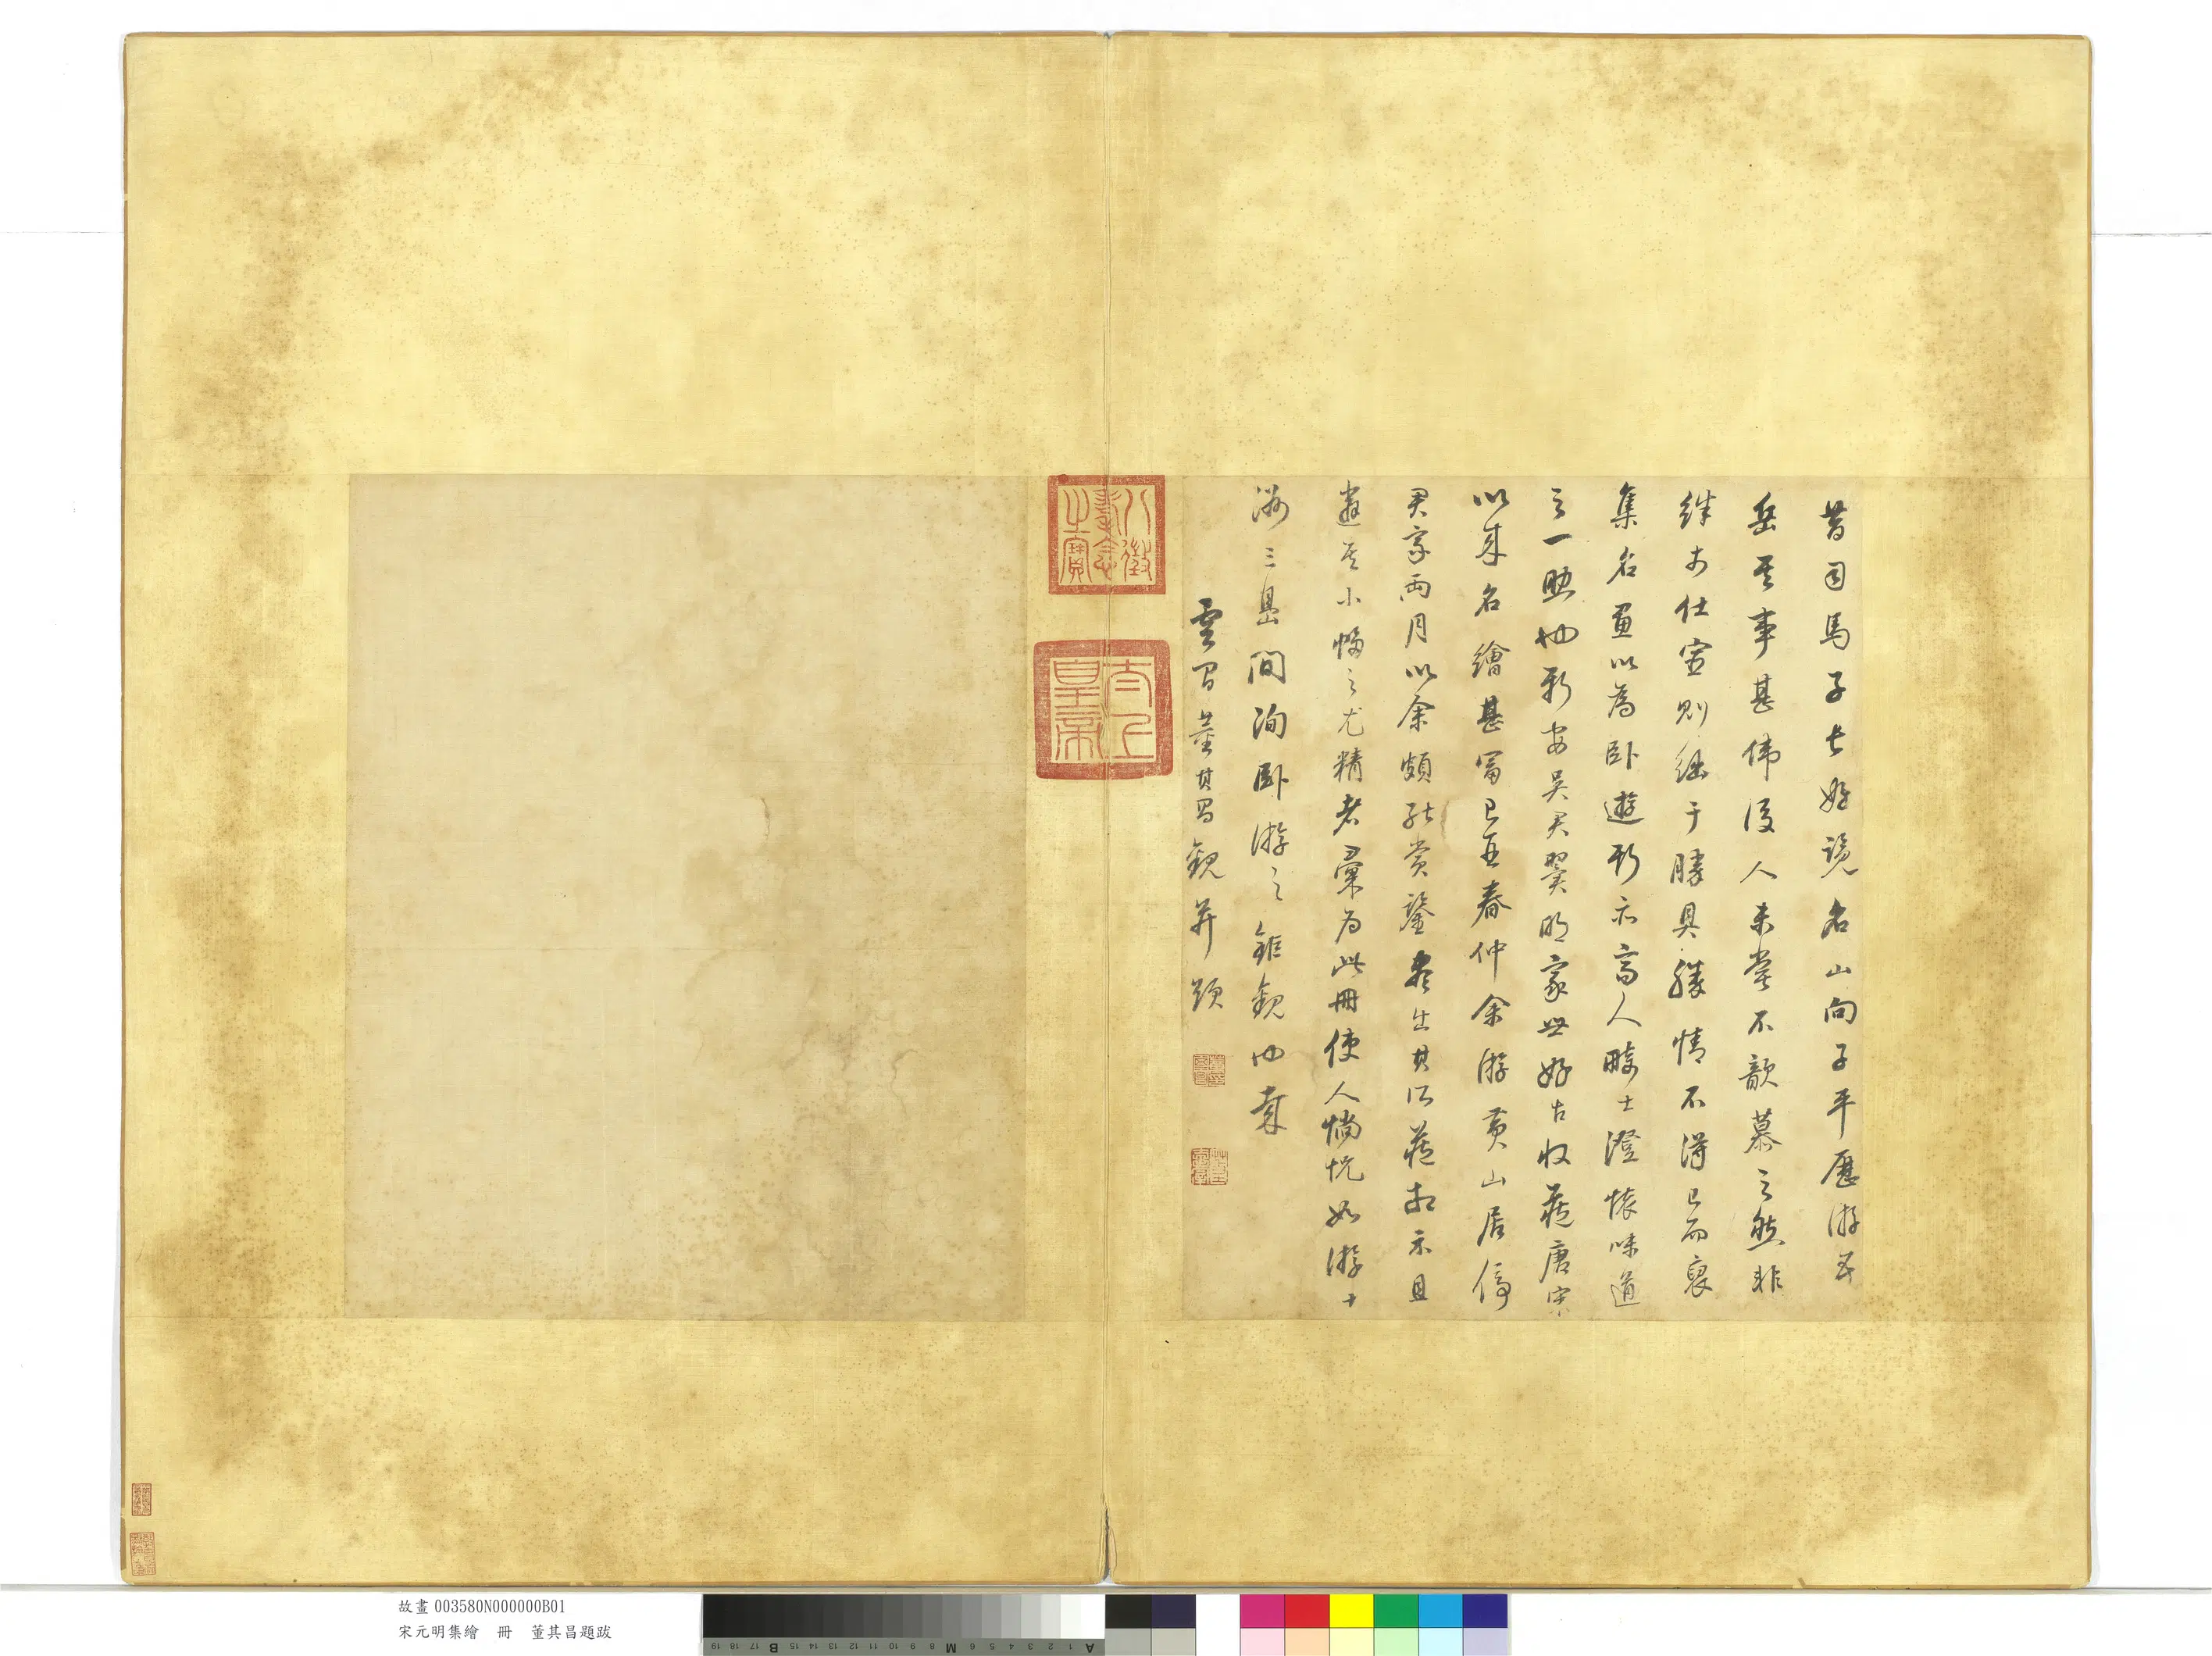 昔司馬子長好覽名山向子平歷游五
岳其事甚偉後人未嘗不歆慕之然非
絓於仕宦則絀于勝具勝情不得已而裒
集名畫以為臥遊斯亦高人畸士澄懷味道
之一助也新安吳君翼明家世好古收藏唐宋
以來名繪甚富己丑春仲余游黃山居停
君家兩月以余頗能賞鑒盡出其所藏相示且
遴其小幅之尤精者彙為此冊使人惝恍如游十
洲三島間洵臥游之鉅觀也
雲間董其昌觀并題
八徵耄念之寶
太上皇帝
故畫 003580N000000B01
宋元明集繪 冊 董其昌題跋